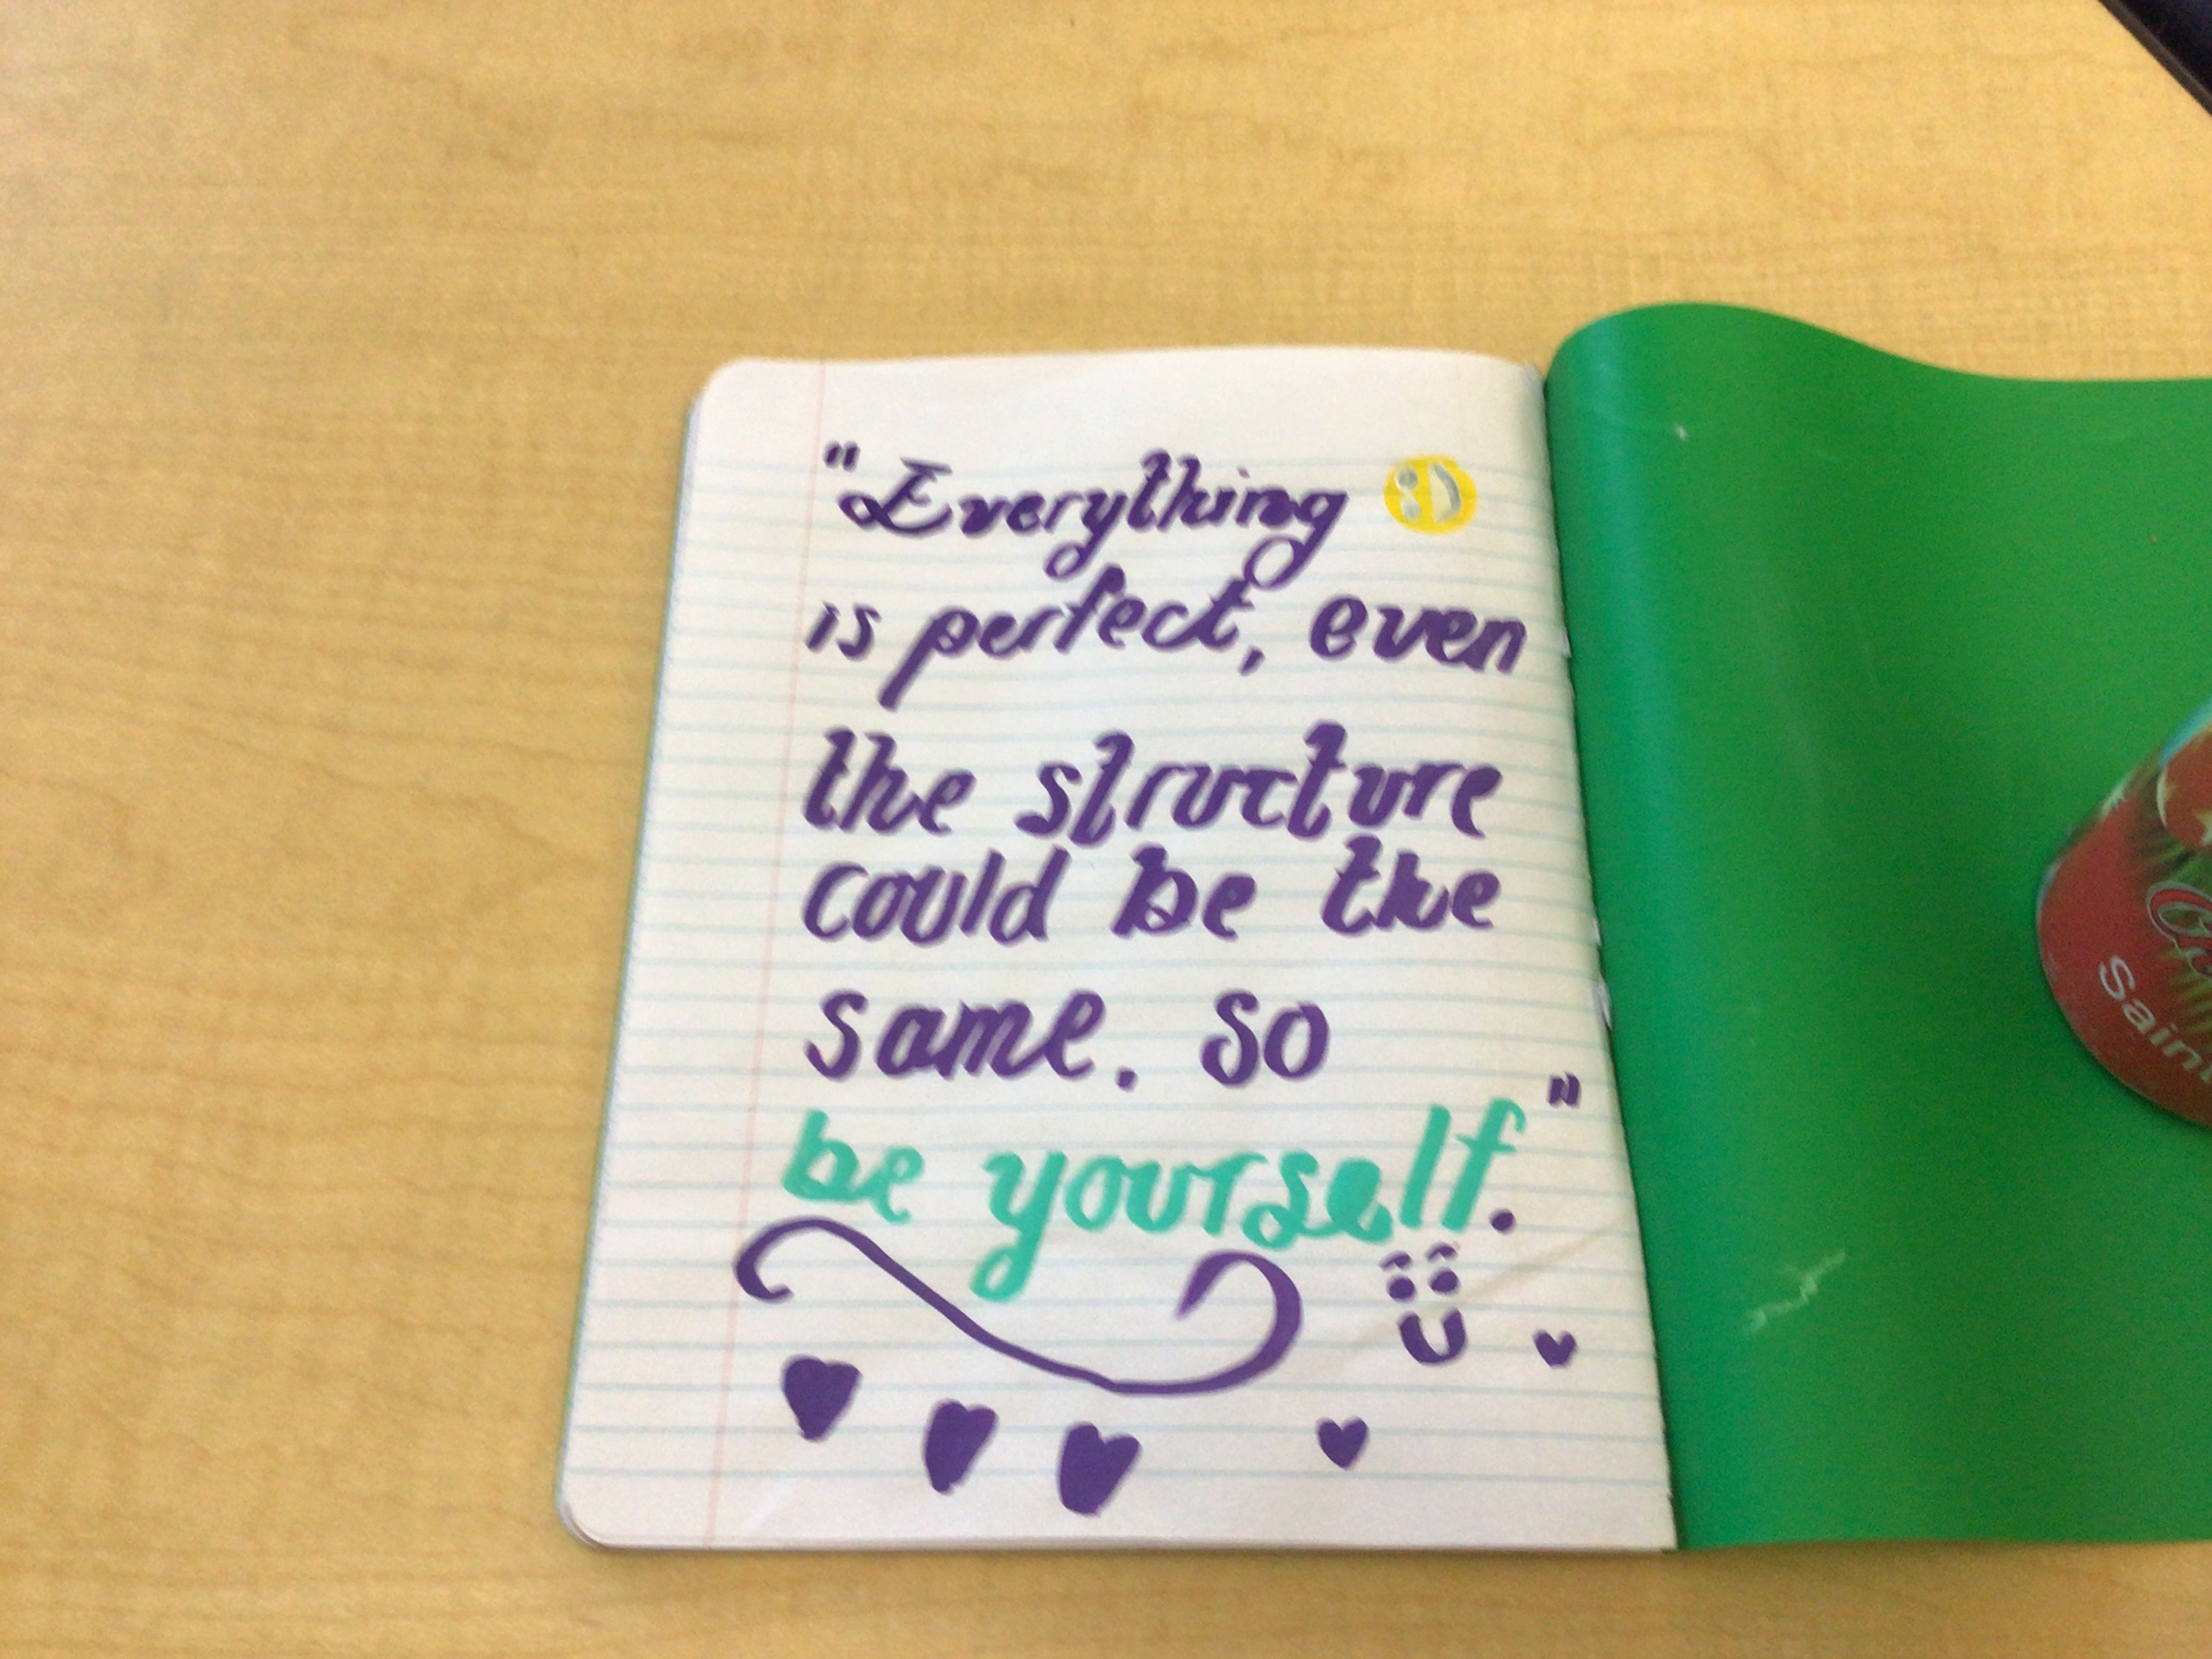 "Everything :)
is perfect, even
the structure
could be the
same. so
be yourself."
Saint